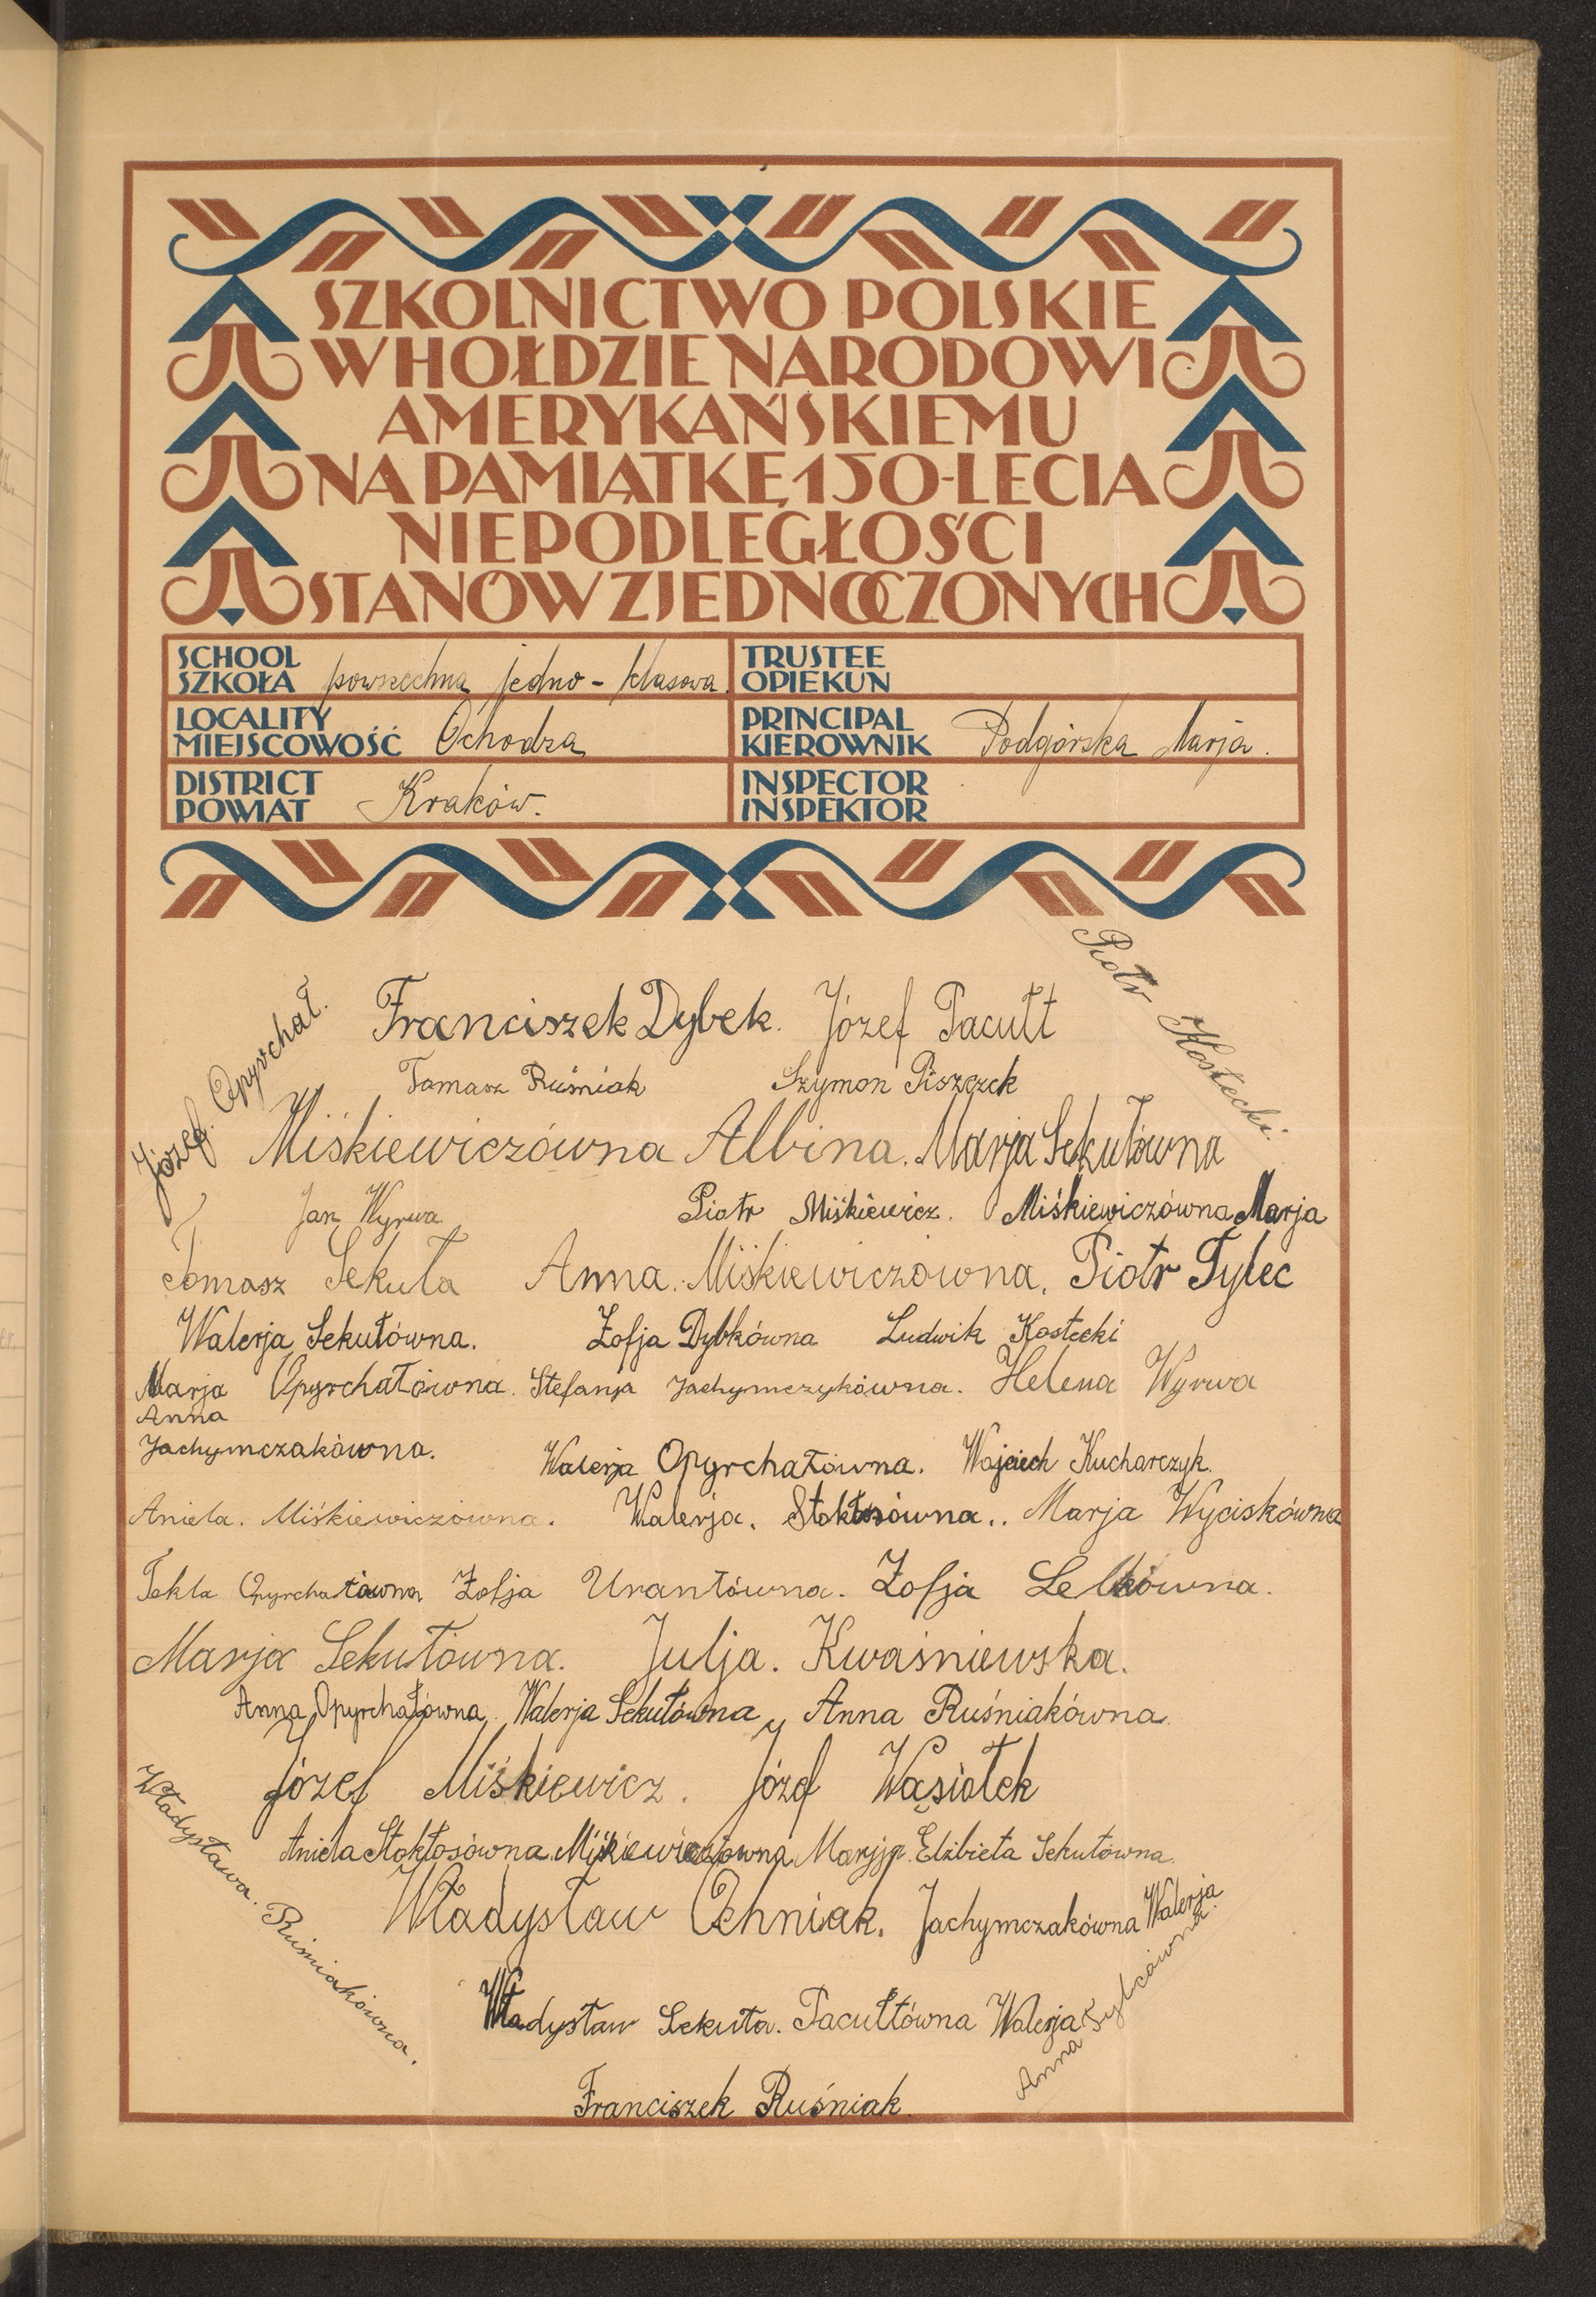 SZKOLNICTWO POLSKIE
W HOŁDZIE NARODOWI
AMERYKAŃSKIEMU
NA PAMIĄTKĘ 150-LECIA
NIEPODLEGŁOŚCI
STANÓW ZJEDNOCZONYCH
SCHOOL
SZKOŁA powszechna jedno-klasowa
TRUSTEE
OPIEKUN
LOCALITY
MIEJSCOWOŚĆ Ochodza
PRINCIPAL
KIEROWNIK Podgórska Marja.
DISTRICT
POWIAT Kraków.
INSPECTOR
INSPEKTOR
Piotr Kostecki.
Józef. Opyrchał.
Franciszek Dybek. Józef Pacułt
Tomasz Ruśniak Szymon Piszczek
Miśkiewiczówna Albina. Marja Sekułówna
Jan Wyrwa Piotr Miśkiewicz. Miśkiewiczówna Marja
Tomasz Sekuła Anna. Miśkiewiczówna. Piotr Tylec
Walerja Sekułówna. Zofja Dybkówna Ludwik Kostecki
Marja Opyrchałówna. Stefanja Jachymczykówna. Helena Wyrwa
Anna
Jachymczakówna. Walerja Opyrchałówna. Wojciech Kucharczyk.
Aniela. Miśkiewiczówna. Walerja. Stokłosówna.. Marja Wyciskówna
Tekla Opyrchałówna Zofja Urantówna. Zofja Lelkówna.
Marja Sekułówna. Julja. Kwaśniewska.
Anna Opyrchałówna. Walerja Sekułówna Anna Ruśniakówna.
Józef Miśkiewicz. Józef Wąsiołek
Władysława. Ruśniakówna.
Aniela Stokłosówna. Miśkiewiczówna Marja. Elżbieta Sekułówna.
Władysław Ochniak. Jachymczakówna Walerja.
Władysław Sekuła. Pacułtówna Walerja
Anna Tylcówna.
Franciszek Ruśniak.